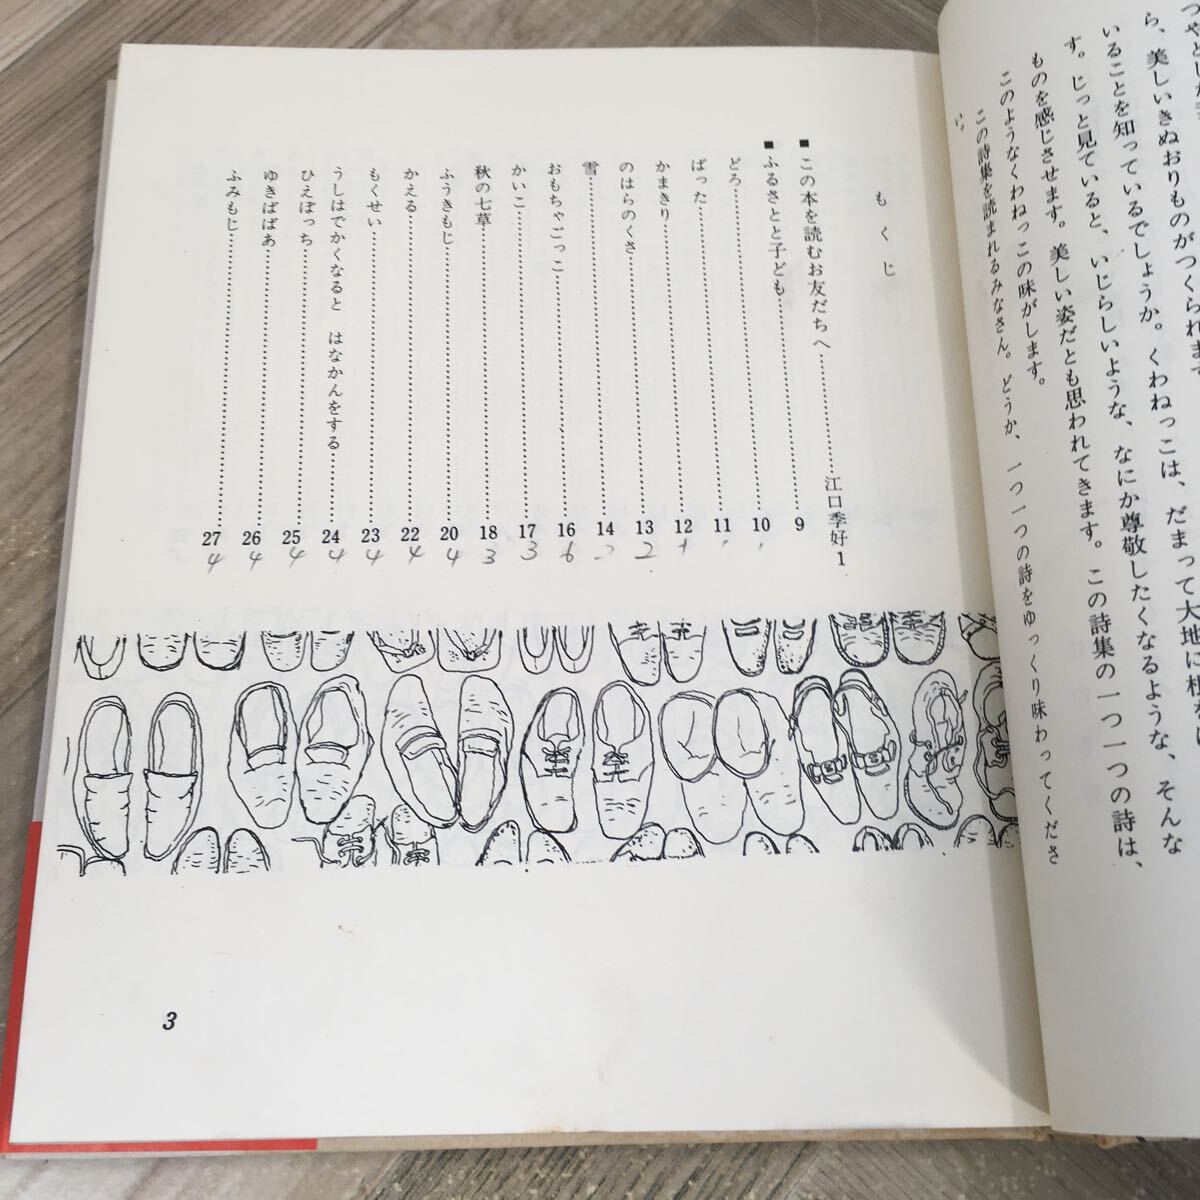 つやとした
ら、美しいきぬおりものがつくられます
いることを知っているでしょうか。くわねっこは、だまって大地に根
す。じっと見ていると、いじらしいような、なにか尊敬したくなるような、そんな
ものを感じさせます。美しい姿だとも思われてきます。この詩集の一つ一つの詩は、
このようなくわねっこの味がします。
この詩集を読まれるみなさん。どうか、一つ一つの詩をゆっくり味わってくださ
い。
もくじ
■この本を読むお友だちへ……江口季好 1
■ふるさとと子ども……9
どろ……10
ばった……11
かまきり……12
のはらのくさ……13 2
雪……14
おもちゃごっこ……16
かいこ……17 3
秋の七草……18 3
ふうきもじ……20 4
かえる……22 4
もくせい……23 4
うしはでかくなると はなかんをする……24 4
ひえぼっち……25 4
ゆきばばあ……26 4
ふみもじ……27 4
3